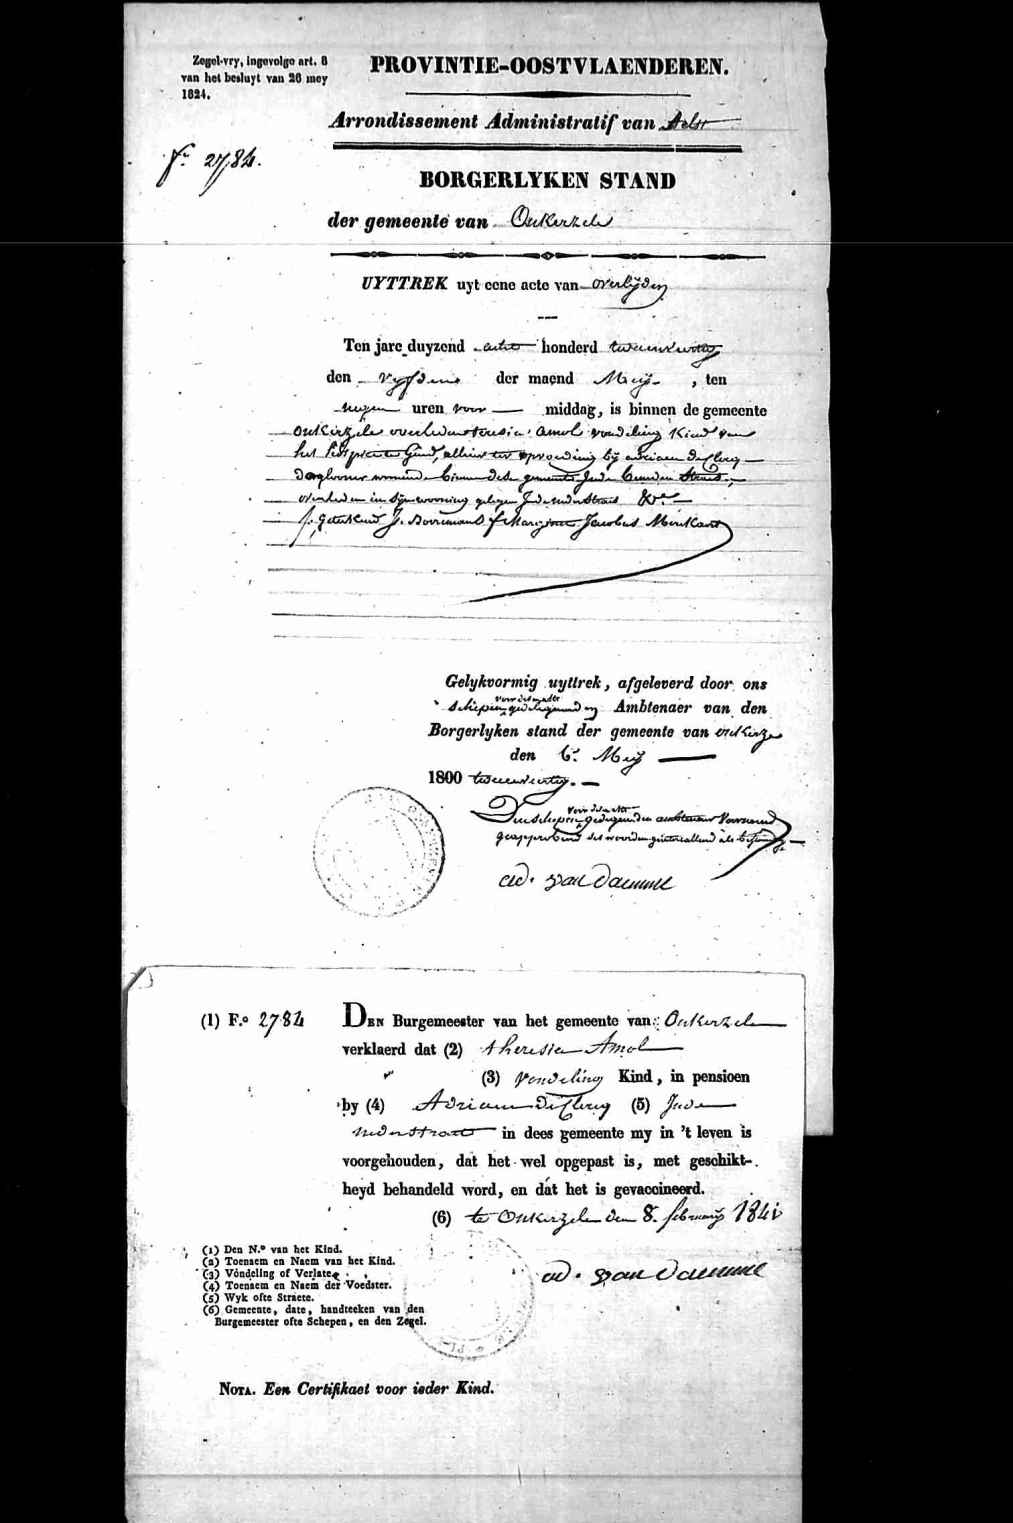 Zegel-vry, ingevolge art. 8
van het besluyt van 26 mey
1824.
PROVINTIE-OOSTVLAENDEREN.
Arrondissement Administratif van Aelst
F.º 2784.
BORGERLYKEN STAND
der gemeente van Onkerzele
UYTTREK uyt eene acte van overlijden
Ten jare duyzend acht honderd
den vyfden der maend Meij , ten
negen uren voor middag, is binnen de gemeente
onkerzele overleden teresia amol vondeling Kind van
het hospice te Gend, alhier ter opvoeding bij adriaen de Clercq
daglooner woonende binnen dese gemeente
overleden in syne wooning gelegen &a.
geteekend J. Jacobus
Gelykvormig uyttrek, afgeleverd door ons
schepen Ambtenaer van den
Borgerlyken stand der gemeente van onkerzele
den 6. Meij
1800
ad. van damme
(1) F.º 2784
DEN Burgemeester van het gemeente van Onkerzele
verklaerd dat (2) theresia Amol
(3) vondeling Kind, in pensioen
by (4) Adriaen de Clercq (5) Inde
nederstraete in dees gemeente my in 't leven is
voorgehouden, dat het wel opgepast is, met geschikt-
heyd behandeld word, en dat het is gevaccineerd.
(6) te Onkerzele den 8. february 1841
ad. van damme
(1) Den N.º van het Kind.
(2) Toenaem en Naem van het Kind.
(3) Vondeling of Verlate.
(4) Toenaem en Naem der Voedster.
(5) Wyk ofte Straete.
(6) Gemeente, date, handteeken van den
Burgemeester ofte Schepen, en den Zegel.
NOTA. Een Certifikaet voor ieder Kind.